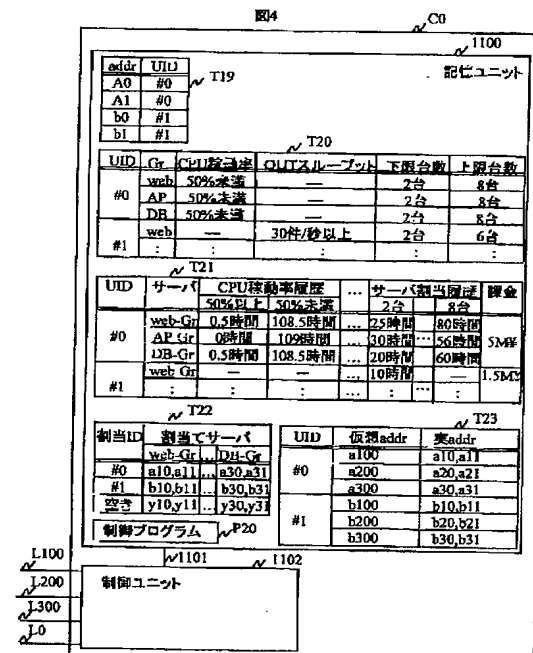 図4
C0
1100
記憶ユニット
addr UID
A0 #0
A1 #0
b0 #1
b1 #1
T19
T20
UID Gr CPU稼動率 OUTスループット 下限台数 上限台数
#0 web 50%未満 — 2台 8台
AP 50%未満 — 2台 8台
DB 50%未満 — 2台 8台
#1 web — 30件/秒以上 2台 6台
: : : : :
T21
UID サーバ CPU稼動率履歴 … サーバ割当履歴 課金
50%以上 50%未満 2台 8台
#0 web-Gr 0.5時間 108.5時間 … 25時間 80時間 5M¥
AP Gr 0時間 109時間 … 30時間 … 56時間
DB-Gr 0.5時間 108.5時間 … 20時間 60時間
#1 web Gr — — … 10時間 — 1.5M¥
: : : … : … :
T22
割当ID 割当てサーバ
web-Gr … DB-Gr
#0 a10,a11 … a30,a31
#1 b10,b11 … b30,b31
空き y10,y11 … y30,y31
T23
UID 仮想addr 実addr
#0 a100 a10,a11
a200 a20,a21
a300 a30,a31
#1 b100 b10,b11
b200 b20,b21
b300 b30,b31
制御プログラム P20
1101
1102
制御ユニット
L100
L200
L300
L0